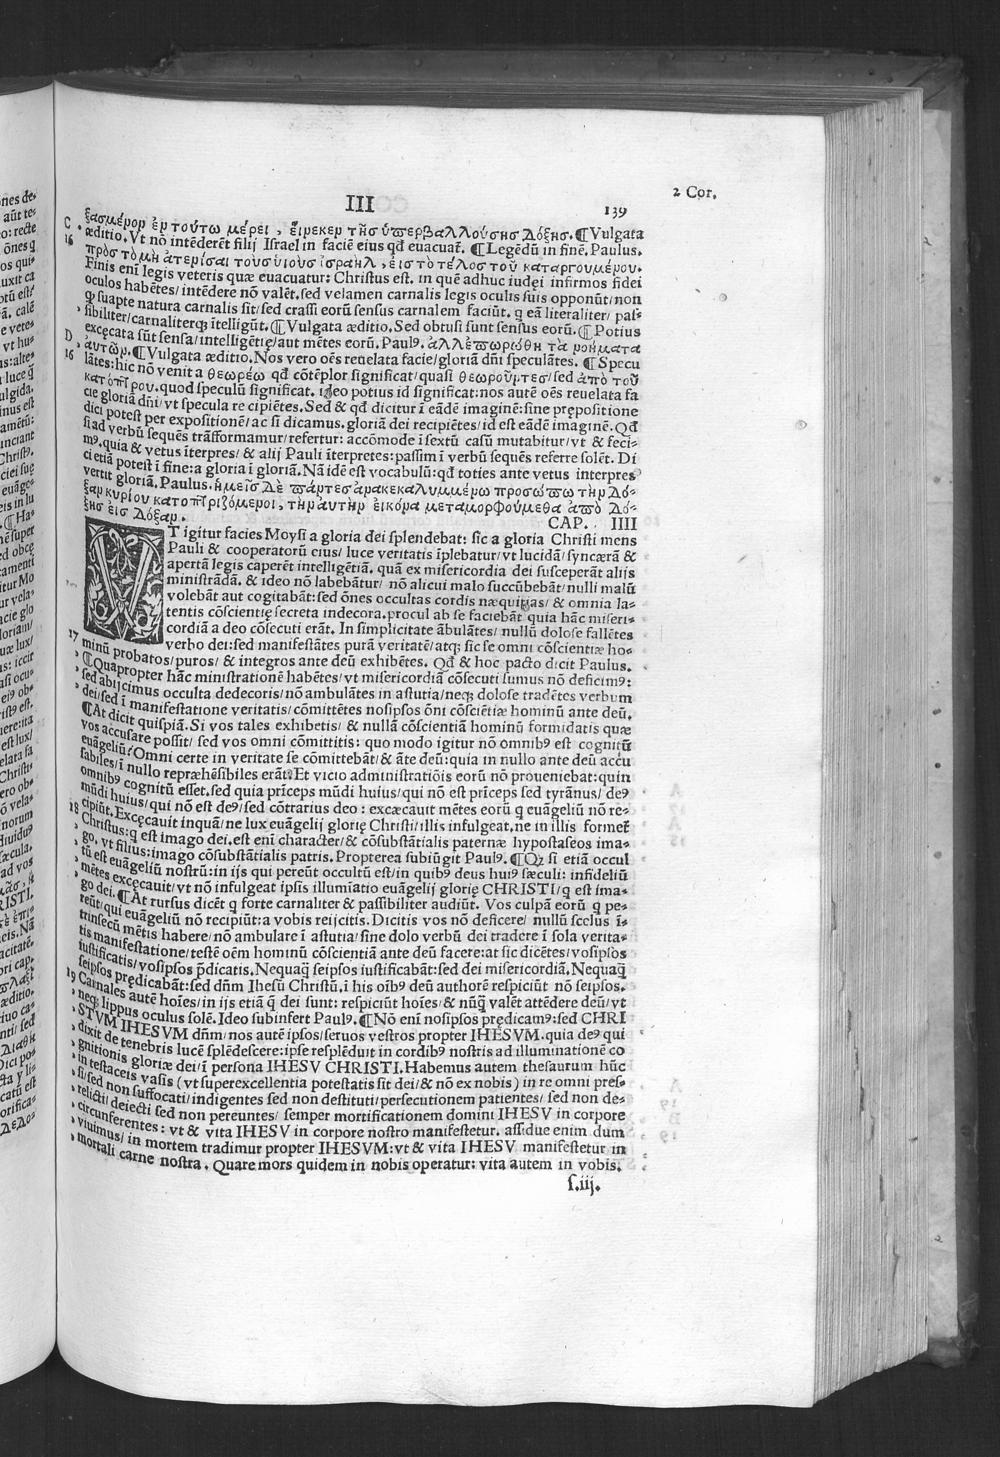 III
2 Cor.
139
ξασμένον ἐν τούτω μέρει, εἵνεκεν τῆσ ὑπερβαλλούσησ δόξησ. ¶Vulgata
C æditio. Vt nō intēderēt filij Israel in faciē eius qđ euacuat̄. ¶Legēdū in finē. Paulus.
16 πρὸσ τὸ μὴ ἀτενίσαι τουσ ὑιουσ ἰσραὴλ, ἐισ τὸ τέλοσ τοῦ καταργουμένου.
Finis enī legis veteris quæ euacuatur: Christus est. in quē adhuc iudęi infirmos fidei
oculos habētes/ intēdere nō valēt. sed velamen carnalis legis oculis suis opponūt/ non
ꝙ suapte natura carnalis sit/ sed crassi eorū sensus carnalem faciūt. q eā literaliter/ pas⸗
sibiliter/ carnaliterqȝ ītelligūt. ¶Vulgata æditio. Sed obtusi sunt sensus eorū. ¶Potius
D excęcata sūt sensa/ intelligētię/ aut mētes eorū. Paulꝰ. ἀλλ᾽ ἐπωρώθη τὰ νοήματα
16 ἀυτῶν. ¶Vulgata æditio. Nos vero oēs reuelata facie/ gloriā dn̄i speculātes. ¶Specu
lātes: hic nō venit a θεωρέω qđ cōtēplor significat/ quasi θεωροῦντεσ/ sed ἀπὸ τοῦ
κατόπτρου. quod speculū significat. ideo potius id significat: nos autē oēs reuelata fa
cie gloriā dn̄i/ vt specula recipiētes. Sed & qđ dicitur ī eādē imaginē: sine prępositione
dici potest per expositionē/ ac si dicamus. gloriā dei recipiētes/ id est eādē imaginē. Qđ
si ad verbū sequēs trāsformamur/ refertur: accōmode ī sextū casū mutabitur/ vt & feci⸗
mꝰ. quia & vetus īterpres/ & alij Pauli īterpretes: passim ī verbū sequēs referre solēt. Di
ci etiā potest ī fine: a gloria ī gloriā. Nā idē est vocabulū: qđ toties ante vetus interpres
vertit gloriā. Paulus. ἡμεῖσ δὲ πάντεσ ἀνακεκαλυμμένω προσώπω τὴν δό⸗
ξαν κυρίου κατοπτριζόμενοι, τὴν αυτὴν ἐικόνα μεταμορφούμεθα ἀπὸ δό⸗
ξησ ἐισ δόξαν.
CAP. IIII
VT igitur facies Moysī a gloria dei splendebat: sic a gloria Christi mens
Pauli & cooperatorū eius/ luce veritatis īplebatur/ vt lucidā/ syncærā &
apertā legis caperēt intelligētiā. quā ex misericordia dei susceperāt alijs
ministrādā. & ideo nō labebātur/ nō alicui malo succūbebāt/ nulli malū
volebāt aut cogitabāt: sed ōnes occultas cordis næquitias/ & omnia la⸗
tentis cōscientię secreta indecora. procul ab se faciebāt quia hāc miseri⸗
cordiā a deo cōsecuti erāt. In simplicitate ābulātes/ nullū dolose fallētes
verbo dei: sed manifestātes purā veritatē/ atqȝ sic se omni cōscientiæ ho⸗
17 minū probatos/ puros/ & integros ante deū exhibētes. Qđ & hoc pacto dicit Paulus.
¶Quapropter hāc ministrationē habētes/ vt misericordiā cōsecuti sumus nō deficimꝰ:
sed abijcimus occulta dedecoris/ nō ambulātes in astutia/ neqȝ dolose tradētes verbum
dei/ sed ī manifestatione veritatis/ cōmittētes nosipsos ōni cōsciētiæ hominū ante deū.
¶At dicit quispiā. Si vos tales exhibetis/ & nullā cōscientiā hominū formidatis quæ
vos accusare possit/ sed vos omni cōmittitis: quo modo igitur nō omnibꝰ est cognitū
euāgeliū? Omni certe in veritate se cōmittebāt/ & āte deū: quia in nullo ante deū accu
sabiles/ ī nullo repræhēsibiles erāt. Et vicio administratiōis eorū nō proueniebat: quin
omnibꝰ cognitū esset. sed quia prīceps mūdi huius/ qui nō est prīceps sed tyrānus/ deꝰ
mūdi huius/ qui nō est deꝰ/ sed cōtrarius deo: excæcauit mētes eorū q euāgeliū nō re⸗
18 cipiūt. Excęcauit inquā/ ne lux euāgelij glorię Christi/ illis infulgeat. ne in illis formet̄
Christus: q est imago dei. est enī character/ & cōsubstātialis paternæ hypostaseos ima⸗
go. vt filius: imago cōsubstātialis patris. Propterea subiūgit Paulꝰ. ¶Qȝ si etiā occul
tū est euāgeliū nostrū: in ijs qui pereūt occultū est/ in quibꝰ deus huiꝰ sæculi: infideliū
mētes excęcauit/ vt nō infulgeat ipsis illumīatio euāgelij glorię CHRISTI/ q est ima⸗
go dei. ¶At rursus dicēt q forte carnaliter & passibiliter audiūt. Vos culpā eorū q pe⸗
reūt/ qui euāgeliū nō recipiūt: a vobis reijcitis. Dicitis vos nō deficere/ nullū scelus ī⸗
trinsecū mētis habere/ nō ambulare ī astutia/ sine dolo verbū dei tradere ī sola verita⸗
tis manifestatione/ testē oēm hominū cōscientiā ante deū facere: at sic dicētes/ vosipsos
iustificatis/ vosipsos p̄dicatis. Nequaq̄ seipsos iustificabāt: sed dei misericordiā. Nequaq̄
seipsos prędicabāt: sed dn̄m Ihesū Christū. ī his oībꝰ deū authorē respiciūt nō seipsos.
19 Carnales autē hoīes/ in ijs etiā q̄ dei sunt: respiciūt hoīes/ & nūq̄ valēt attēdere deū/ vt
neqȝ lippus oculus solē. Ideo subinfert Paulꝰ. ¶Nō enī nosipsos prędicamꝰ: sed CHRI
STVM IHESVM dn̄m/ nos autē ipsos/ seruos vestros propter IHESVM. quia deꝰ qui
dixit de tenebris lucē splēdescere: ipse resplēduit in cordibꝰ nostris ad illuminationē co
gnitionis gloriæ dei/ ī persona IHESV CHRISTI. Habemus autem thesaurum hūc
in testaceis vasis (vt superexcellentia potestatis sit dei/ & nō ex nobis) in re omni pres⸗
si/ sed non suffocati/ indigentes sed non destituti/ persecutionem patientes/ sed non de⸗
relicti/ deiecti sed non pereuntes/ semper mortificationem domini IHESV in corpore
circunferentes: vt & vita IHESV in corpore nostro manifestetur. assidue enim dum
viuimus/ in mortem tradimur propter IHESVM: vt & vita IHESV manifestetur in
mortali carne nostra. Quare mors quidem in nobis operatur: vita autem in vobis.
s.iij.